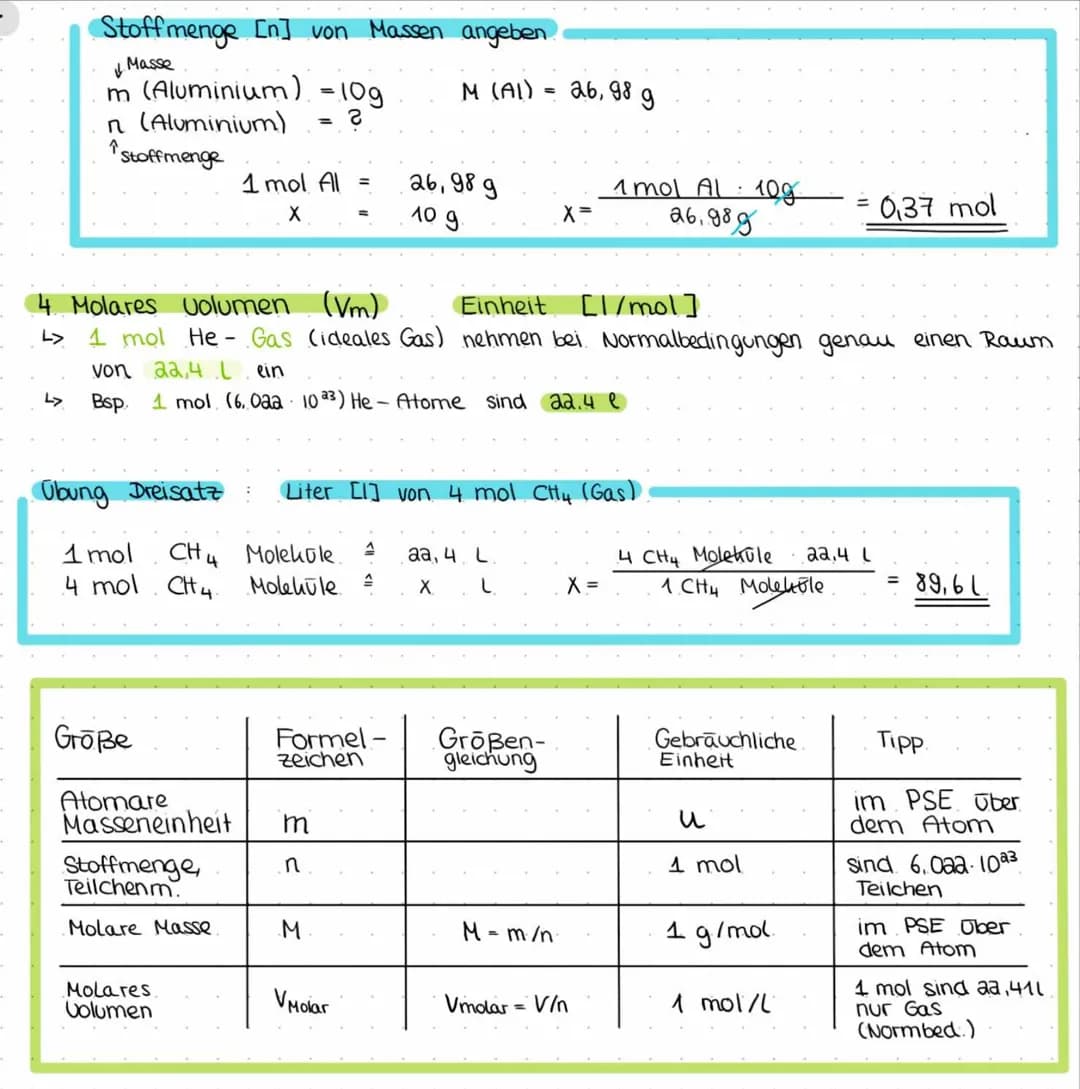 Stoffmenge [n] von Massen angeben
↓ Masse
m (Aluminium) = 10g M (Al) = 26,98 g
n (Aluminium) = ?
↑ Stoffmenge
1 mol Al = 26,98 g
x = 10 g
x = 1 mol Al · 10g / 26,98 g = 0,37 mol
4 Molares Volumen (Vm) Einheit [l/mol]
↳ 1 mol He - Gas (ideales Gas) nehmen bei Normalbedingungen genau einen Raum
von 22,4 L ein
↳ Bsp. 1 mol (6,022 · 10²³) He - Atome sind 22.4 l
Übung Dreisatz : Liter [l] von 4 mol CH₄ (Gas)
1 mol CH₄ Moleküle ≙ 22,4 L
4 mol CH₄ Moleküle ≙ x L
x = 4 CH₄ Moleküle · 22,4 L / 1 CH₄ Moleküle = 89,6 l
Größe Formel- Größen- Gebräuchliche Tipp
zeichen gleichung Einheit
Atomare im PSE über
Masseneinheit m u dem Atom
Stoffmenge, n 1 mol sind 6,022·10²³
Teilchenm. Teilchen
Molare Masse M M = m/n 1 g/mol im PSE über
dem Atom
Molares V Molar Vmolar = V/n 1 mol/L 1 mol sind 22,41l
Volumen nur Gas
(Normbed.)